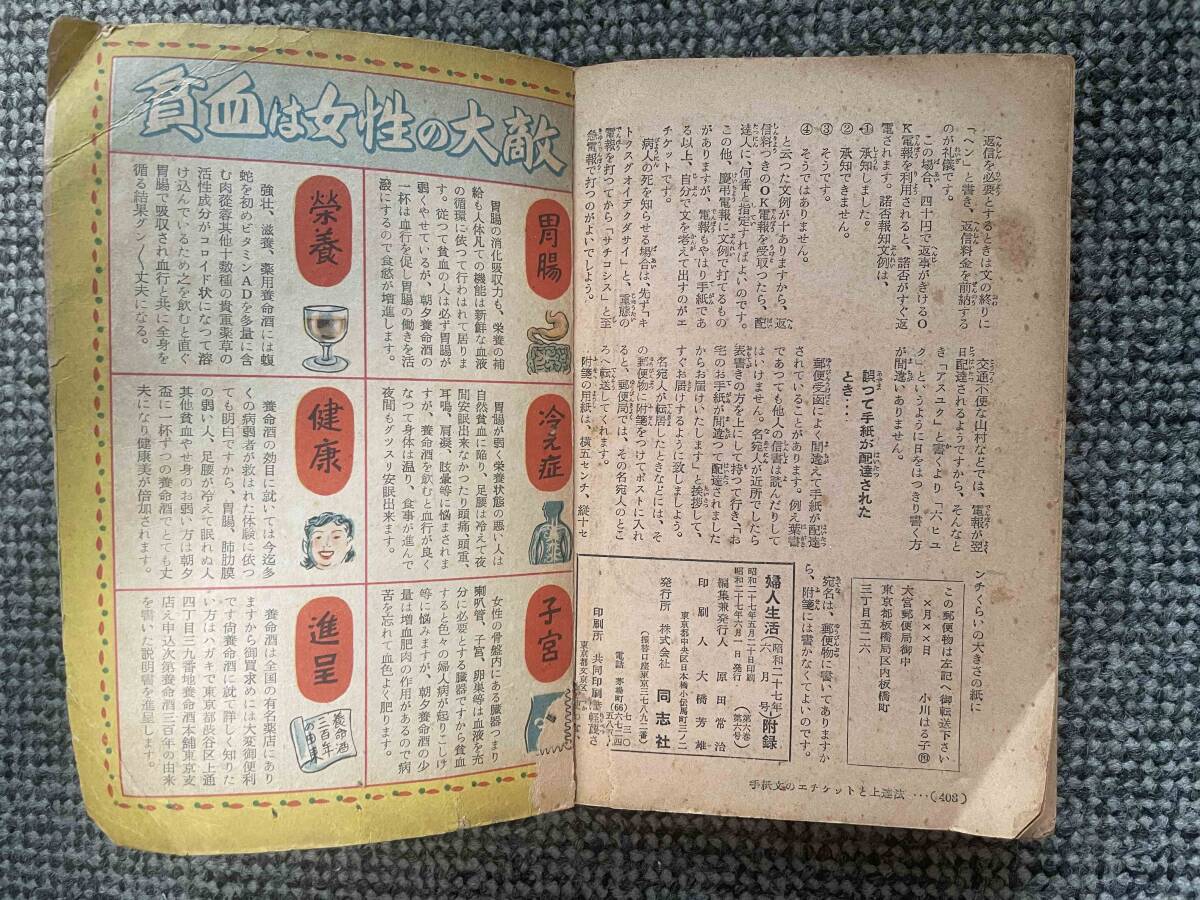 返信を必要とするときは文の終りに
「ヘン」と書き、返信料金を前納する
のが礼儀です。
この場合、四十円で返事がきけるO
K電報を利用されると、諾否がすぐ返
電されます。諾否報知文例は、
① 承知しました。
② 承知できません。
③ そうです。
④ そうではありません。
と云つた文例が十ありますから、返
信料つきのOK電報を受取つたら、配
達人に、何番と指定すればよいのです。
この他、慶弔電報に文例で打てるもの
がありますが、電報もやはり手紙であ
る以上、自分で文を考えて出すのがエ
チケットです。
病人の死を知らせる場合は、先ず「キ
トクスグオイデクダサイ」と、重態の
電報を打つてから「サチコシス」と至
急電報で打つのがよいでしよう。
交通不便な山村などでは、電報が翌
日配達されるようですから、そんなと
き「アスユク」と書くより「六ヒユ
ク」というように日をはつきり書く方
が間違いありません。
誤つて手紙が配達された
とき…
郵便受函によく間違えて手紙が配達
されていることがあります。例え葉書
であつても他人の信書は読んだりして
はいけません。名宛人が近所でしたら
表書きの方を上にして持つて行き、「お
宅のお手紙が間違つて配達されました
からお届けいたします」と挨拶して、
すぐお届けするように致しましよう。
名宛人が転居したときなどには、そ
の郵便物に附箋をつけてポストに入れ
ると、郵便局では、その名宛人のとこ
ろへ転送してくれます。
附箋の用紙は、横五センチ、縦十セ
ンチくらいの大きさの紙に
この郵便物は左記へ御転送下さい
×月×日 小川はる子㊞
大宮郵便局御中
東京都板橋局区内板橋町
三丁目五二六
宛名は、郵便物に書いてありますか
ら、附箋には書かなくてよいのです。
婦人生活(昭和二十七年六月号)附録
昭和二十七年五月二十日印刷
昭和二十七年六月一日発行(第六巻第六号)
編集兼発行人 原田常治
印刷人 大橋芳雄
東京都中央区日本橋小伝馬町三ノ二
発行所 株式会社 同志社
(振替口座東京三七八九二番)
印刷所 共同印刷
手紙文のエチケットと上達法…(408)
貧血は女性の大敵
胃腸
胃腸の消化吸収力も、栄養の補
給も人体凡ての機能は新鮮な血液
の循環に依つて行わはれて居りま
す。従つて貧血の人は必ず胃腸が
弱くやせているが、朝夕養命酒の
一杯は血行を促し胃腸の働きを活
潑にするので食慾が増進します。
榮養
強壮、滋養、薬用養命酒には蝮
蛇を初めビタミンADを多量に含
む肉蓯蓉其他十数種の貴重薬草の
活性成分がコロイド状になつて溶
け込んでいるため之を飲むと直ぐ
胃腸で吸収され血行と共に全身を
循る結果グン〱丈夫になる。
冷え症
胃腸が弱く栄養状態の悪い人は
自然貧血に陥り、足腰は冷えて夜
間安眠出来なかつたり頭痛、頭重、
耳鳴、肩凝、眩暈等に悩まされま
すが、養命酒を飲むと血行が良く
なつて身体は温り、食事が進んで
夜間もグツスリ安眠出来ます。
健康
養命酒の効目に就いては今迄多
くの病弱者が救はれた体験に依つ
ても明白ですから、胃腸、肺肋膜
の弱い人、足腰が冷えて眠れぬ人
其他貧血やせ身のお弱い方は朝夕
盃に一杯ずつの養命酒でとても丈
夫になり健康美が倍加されます。
子宮
女性の骨盤内にある臓器つまり
喇叭管、子宮、卵巣等は血液を充
分に必要とする臓器ですから貧血
すると色々の婦人病が起りこしけ
等に悩みますが、朝夕養命酒の少
量は増血肥肉の作用があるので病
苦を忘れて血色よく肥ります。
進呈
養命酒三百年の由来
養命酒は全国の有名薬店にあり
ますから御買求めには大変御便利
です倘養命酒に就て詳しく知りた
い方は、ハガキで東京都渋谷区上通
四丁目三九番地養命酒本舗東京支
店え申込次第養命酒三百年の由来
を書いた説明書を進呈します。